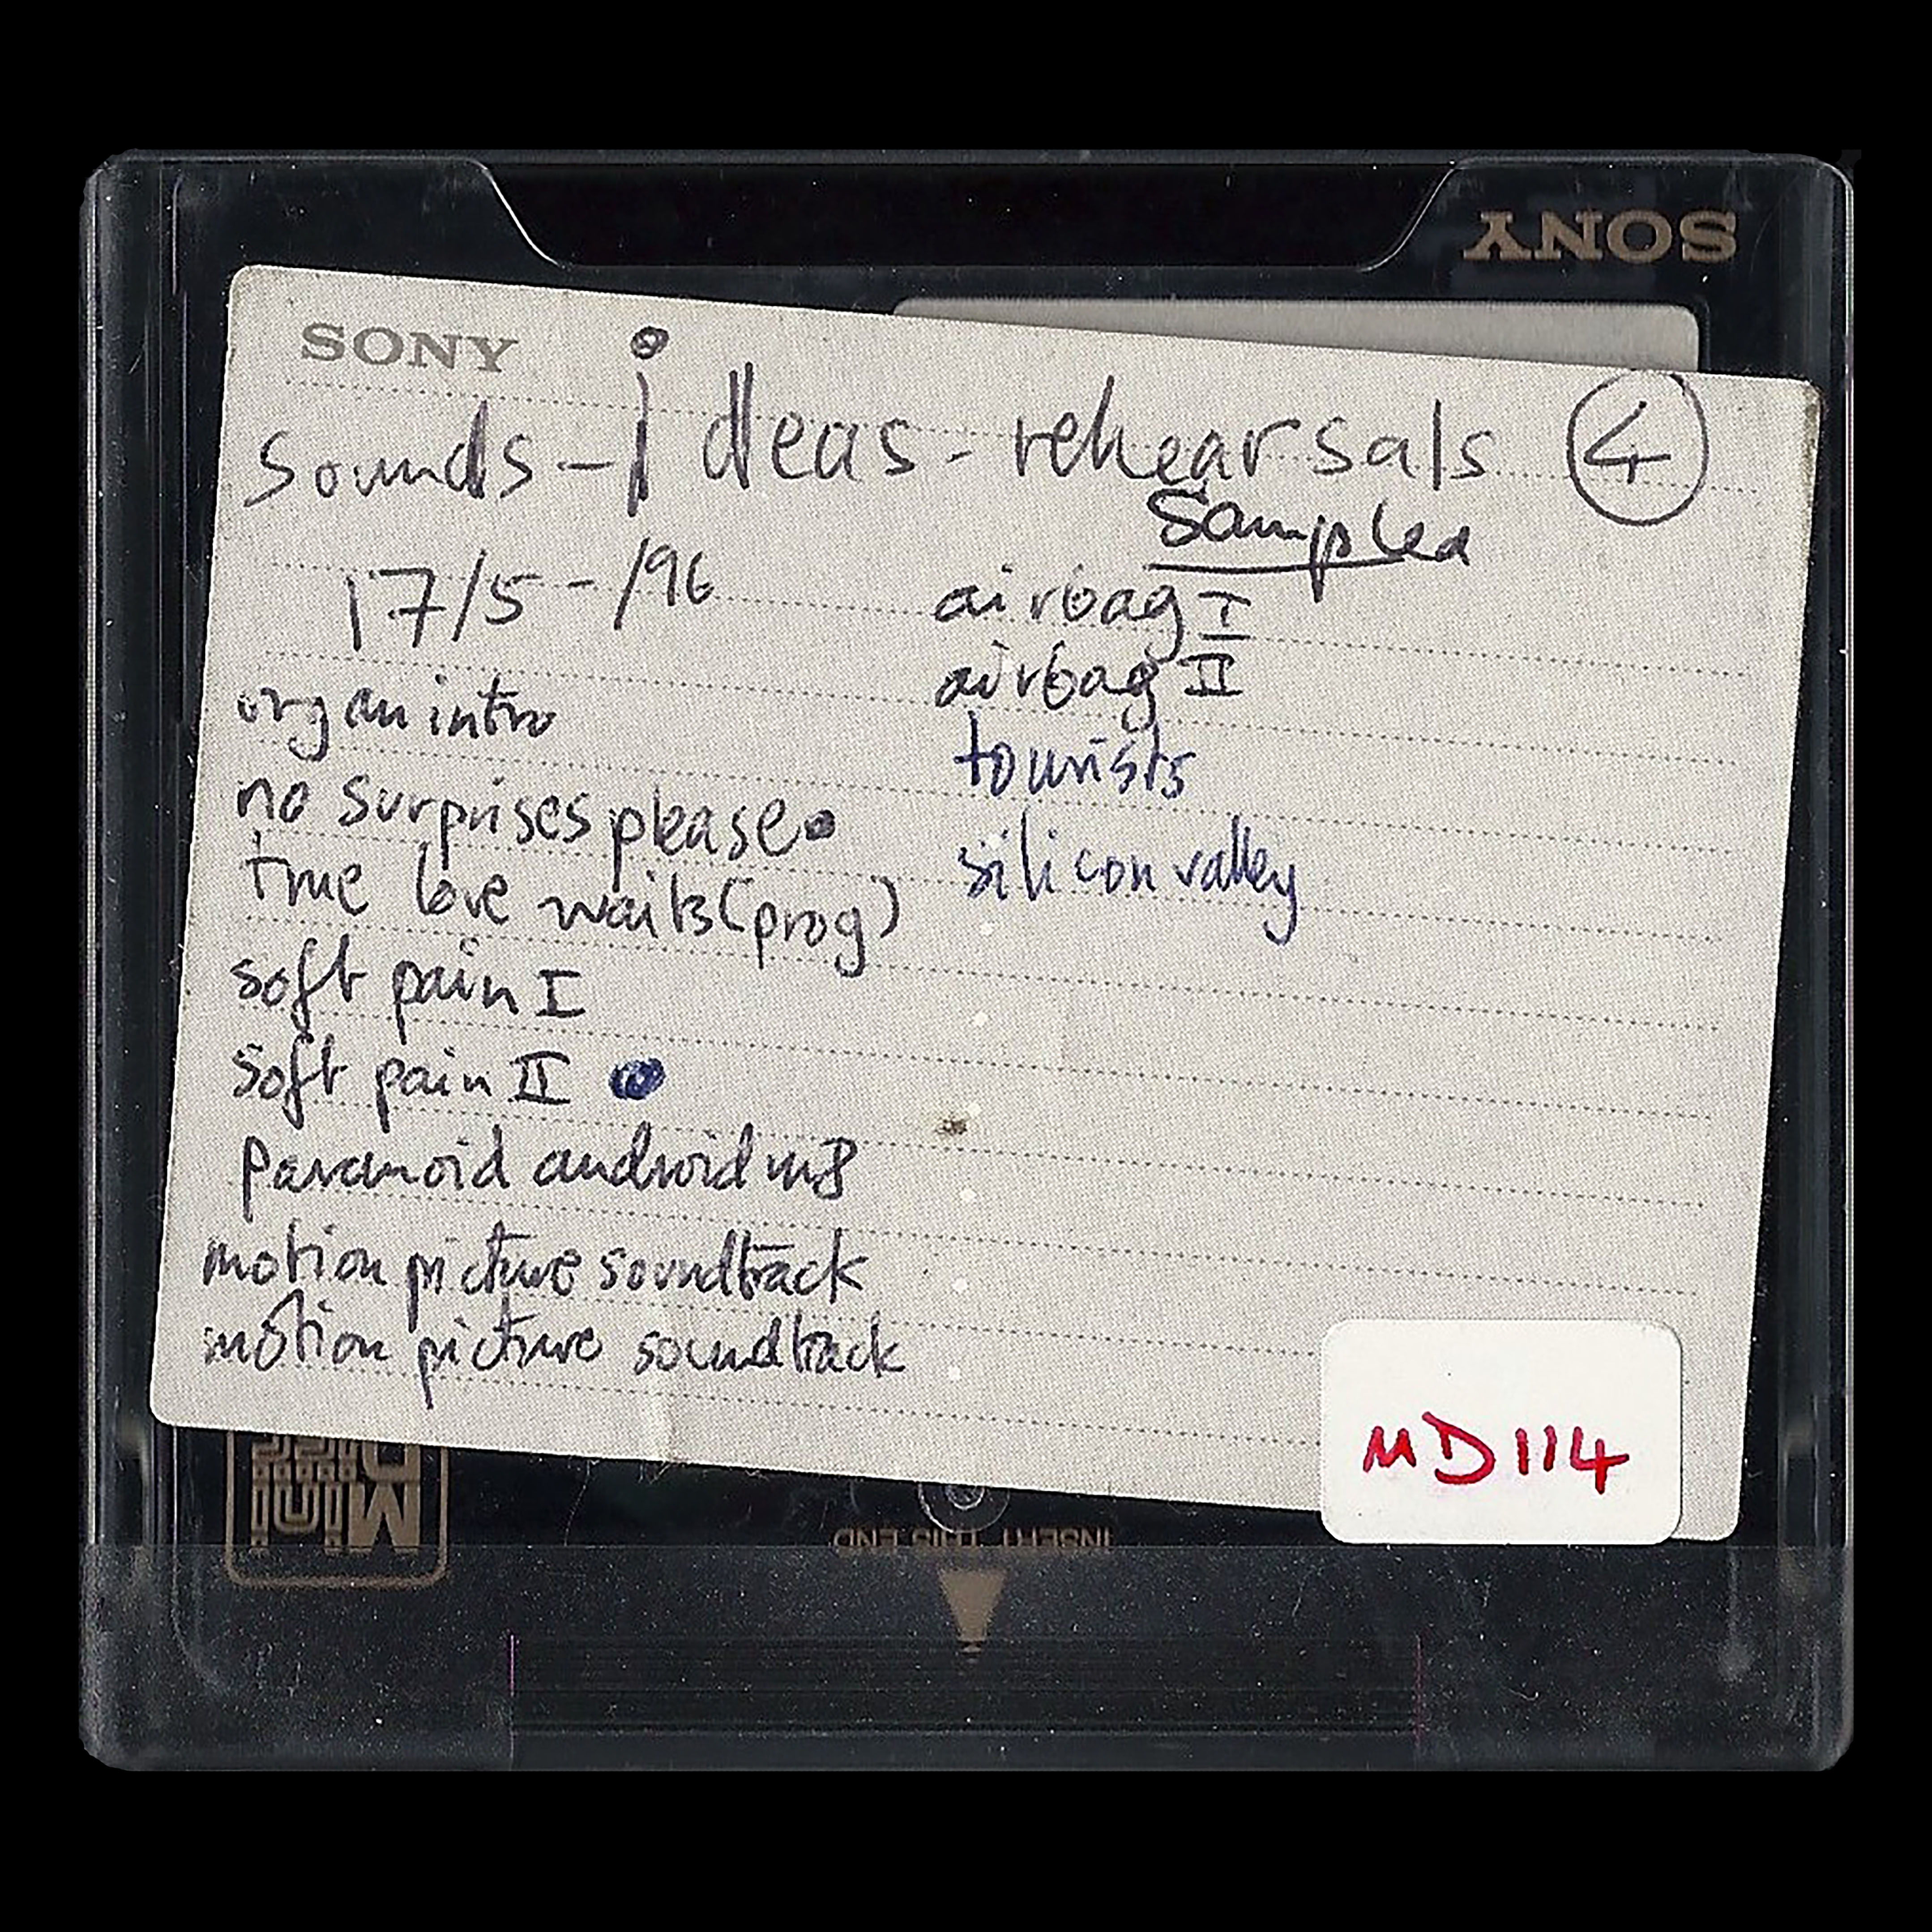 SONY
SONY
sounds - ideas - rehearsals 4
Sampled
17/5 - /96
organ intro
no surprises please
true love waits (prog)
soft pain I
soft pain II
paranoid android
motion picture soundtrack
motion picture soundtrack
airbag I
airbag II
tourists
silicon valley
MD114
Mini Disc
INSERT THIS END